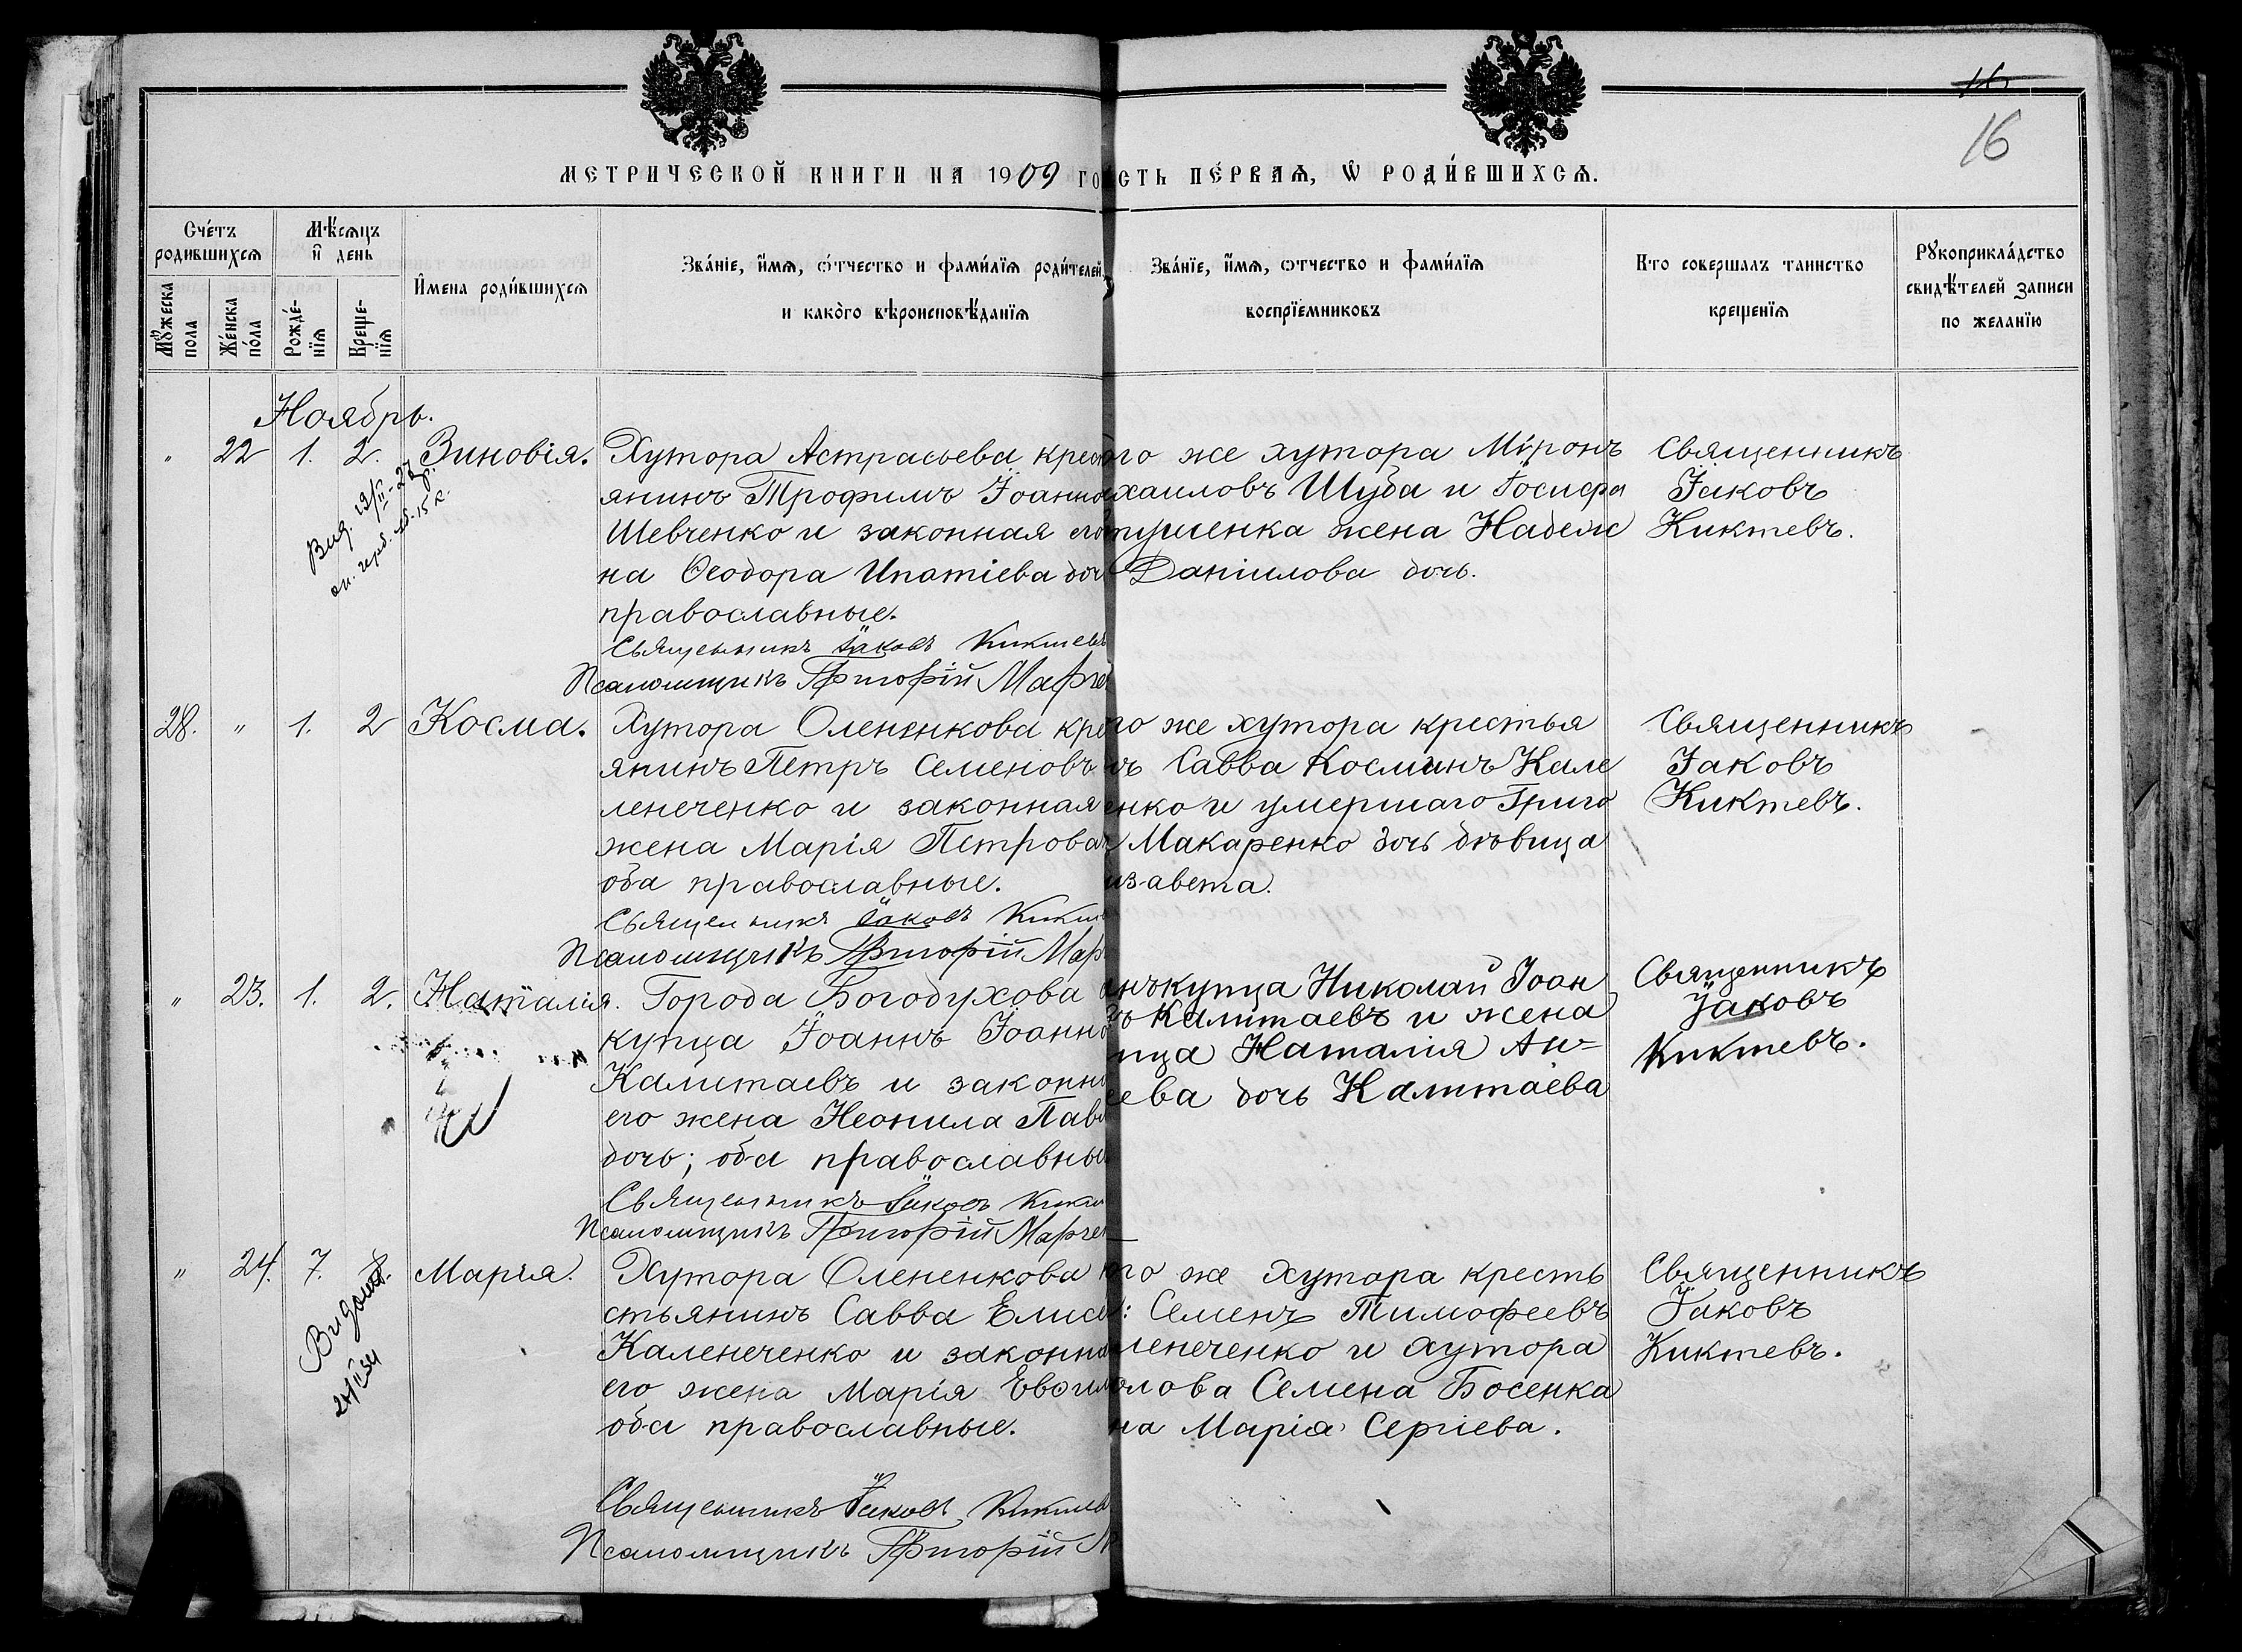 16
МЕТРИЧЕСКОЙ КНИГИ НА 1909 ГО
СТЬ ПЕ́РВАѦ, Ѡ҆ РОДИ́ВШИХСѦ.
Сче́тъ родившихсѧ
Мѣ́сѧцъ и҆ день
И҆мена роди́вшихсѧ
Зва́нїе, и҆́мѧ, ѻ҆́тчество и фами́лїѧ роди́телей,
и како̀го вѣроисповѣ́данїѧ
Зва́нїе, и҆́мѧ, ѻтчество и фами́лїѧ
воспрїе́мниковъ
Кто совершалъ таинство
крещенїѧ
Рꙋкоприкла́дство
свидѣ́телей записи
по желанїю
Мꙋ́жеска пола
Же́нска по́ла
Рожде́-нїѧ
Креще-нїѧ
Ноябрь.
" 22 1. 2. Зиновія.
Хутора Астрасьева крес
янинъ Трофимъ Іоанно
Шевченко и законная его
на Ѳеодора Ипатіева доч
православные.
Священникъ Іаковъ Киктевъ
Псаломщикъ Григорій Марче
го же хутора Міронъ
хаиловъ Шуба и Іосифа
тушенка жена Надеж
Даніилова дочь.
Священникъ
Іаковъ
Киктевъ.
Вид.
28. " 1. 2 Косма.
Хутора Олененкова кре
янинъ Петръ Семеновъ
ленеченко и законная
жена Марія Петрова
оба православные.
Священникъ Іаковъ Кикте
Псаломщикъ Григорій Мар
го же хутора крестья
ъ Савва Косминъ Кале
енко и умершаго Григо
Макаренко дочь дѣвица
изавета.
Священникъ
Іаковъ
Киктевъ.
" 23. 1. 2. Наталія.
Города Богодухова
купца Іоаннъ Іоанно
Калитаевъ и законн
его жена Неонила Пав
дочь; оба православны
Священникъ Іаковъ Кикт
Псаломщикъ Григорій Марчен
нъ купца Николай Іоан
ъ Калитаевъ и жена
пца Наталія Ан=
еева дочь Калитаева
Священникъ
Іаковъ
Киктевъ.
" 24. 7. 8. Марія.
Хутора Олененкова к
стьянинъ Савва Елисе
Каленеченко и законна
его жена Марія Евѳим
оба православные.
Священникъ Іаковъ Киктев
Псаломщикъ Григорій М
го же хутора кресть
: Семенъ Тимофеевъ
ленеченко и хутора
олова Семена Босенка
на Марія Сергіева.
Священникъ
Іаковъ
Киктевъ.
Видана